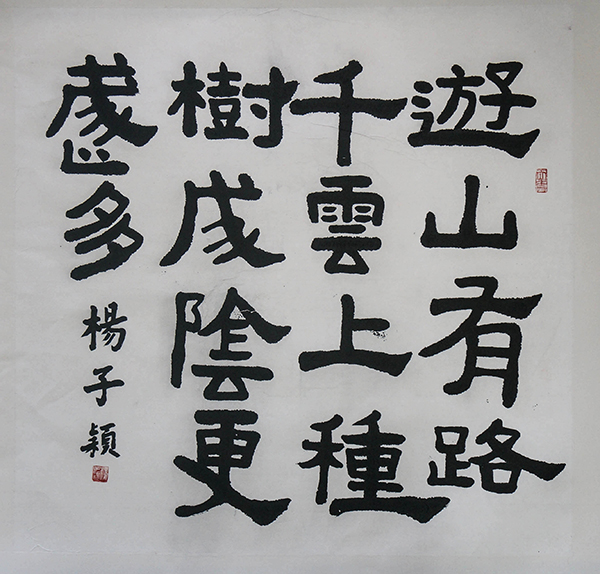 遊山有路
千雲上種
樹成陰更
多
楊子穎